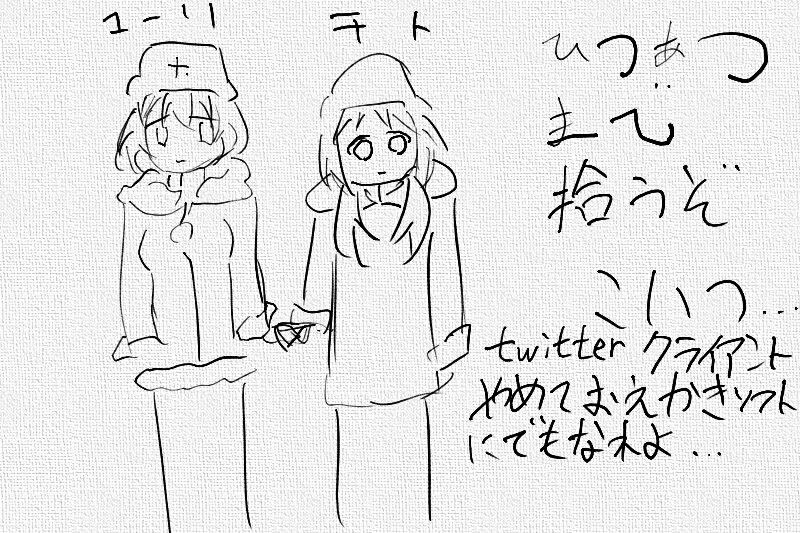 ユーリ
チト
ひつあつ
まで
拾うぞ
こいつ...
twitterクライアント
やめておえかきソフト
にでもなれよ...